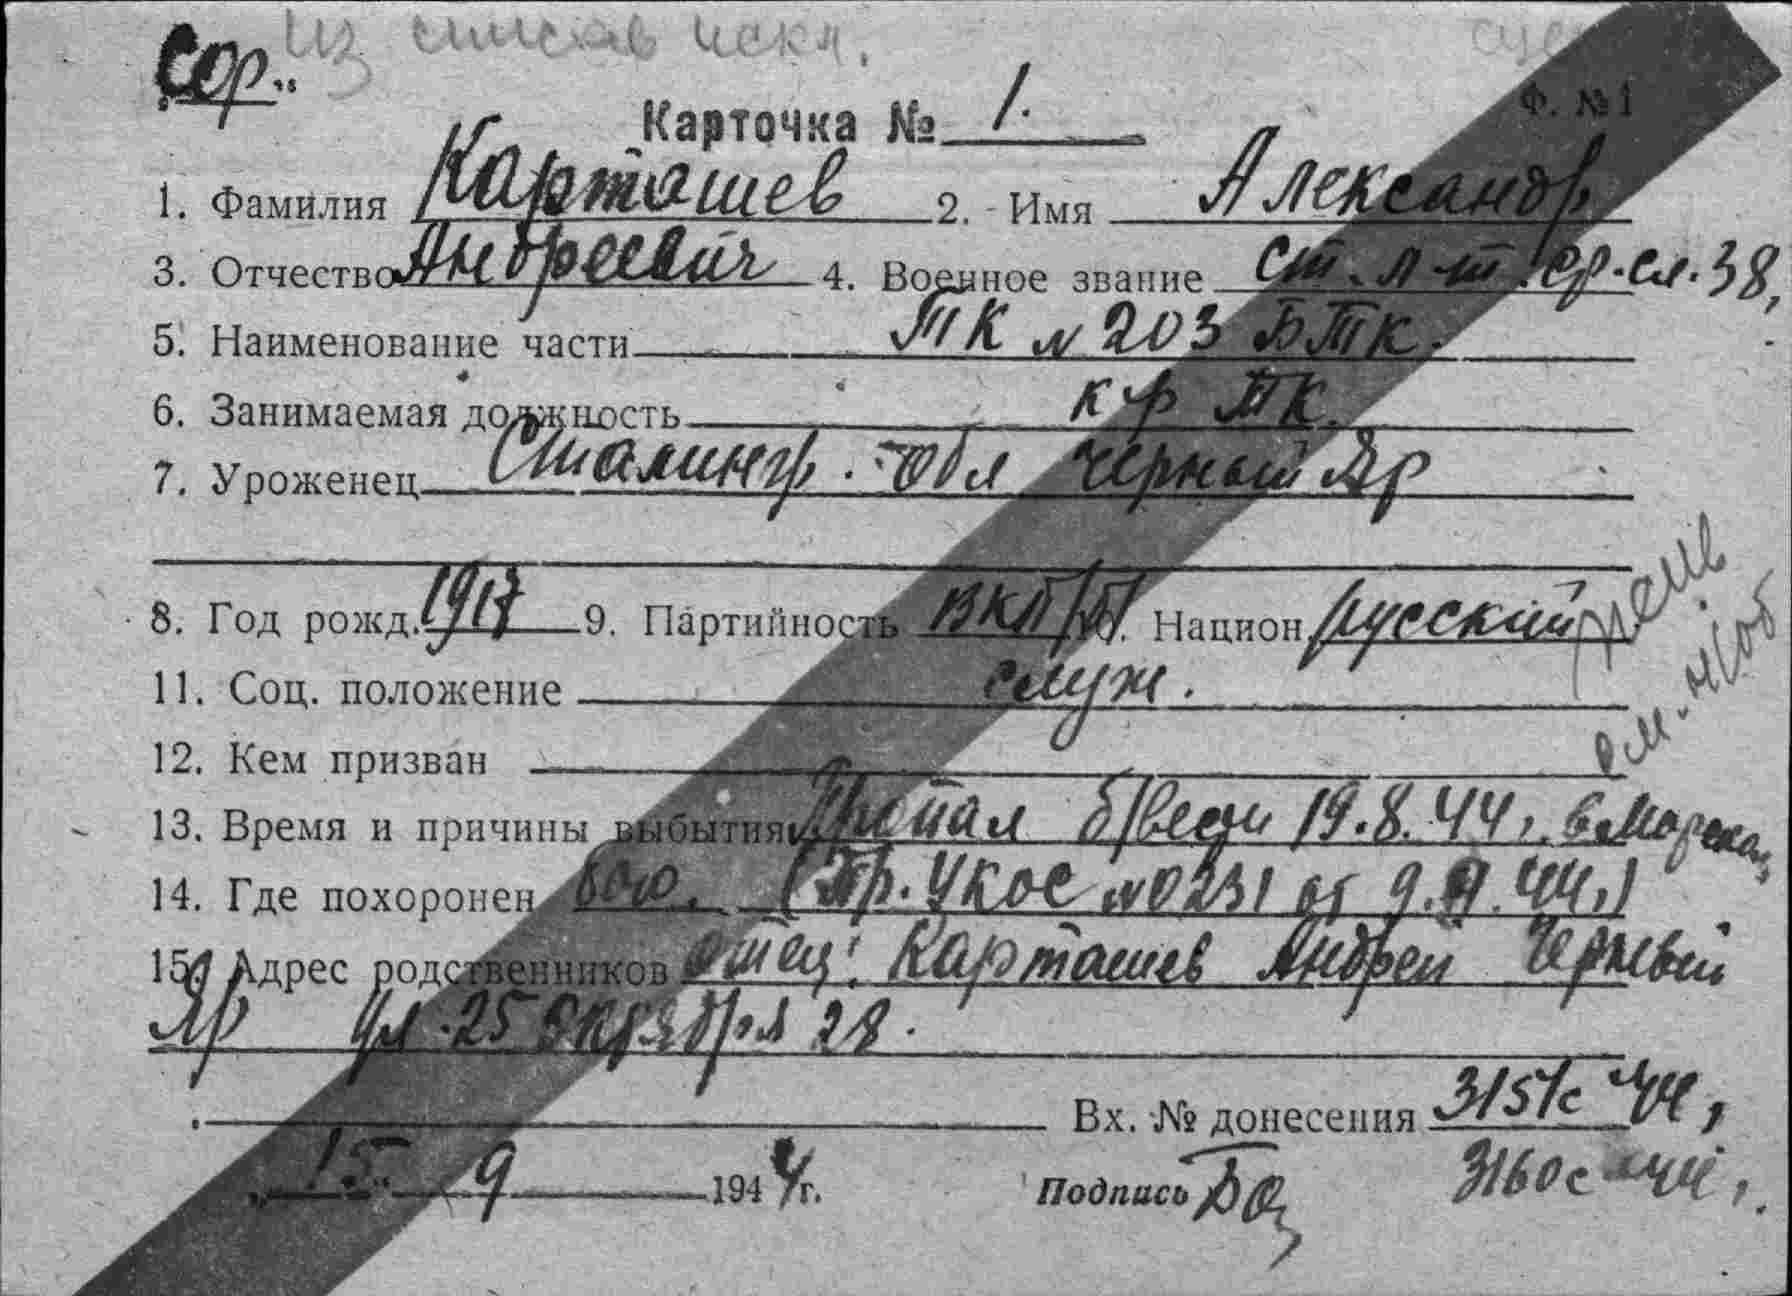 Сор.. Из списков искл.
Ф. №1
Карточка № 1.
1. Фамилия Карташев 2. Имя Александр
3. Отчество Андреевич 4. Военное звание ст. л-т ср.-сл. 38,
5. Наименование части ТК № 203 БТК.
6. Занимаемая должность к-р ТК.
7. Уроженец Сталингр. обл Черный Яр
8. Год рожд. 1917 9. Партийность ВКП/б/. Национ русский
11. Соц. положение служ.
12. Кем призван
13. Время и причины выбытия Пропал б/вести 19.8.44, в морском
14. Где похоронен бою. (Пр. УКОС № 0231 от 9.9.44,)
15. Адрес родственников отец: Карташев Андрей Черный
Яр ул. 25 Октября 28.
Вх. № донесения 3151с 44,
15 9 1944 г. Подпись 3160с-44,